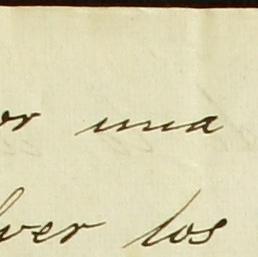 or una
lver los